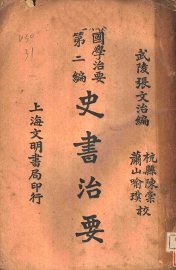 武陵張文治編
杭縣陳棠
蕭山喻璞校
國學治要
第二編
史書治要
上海文明書局印行